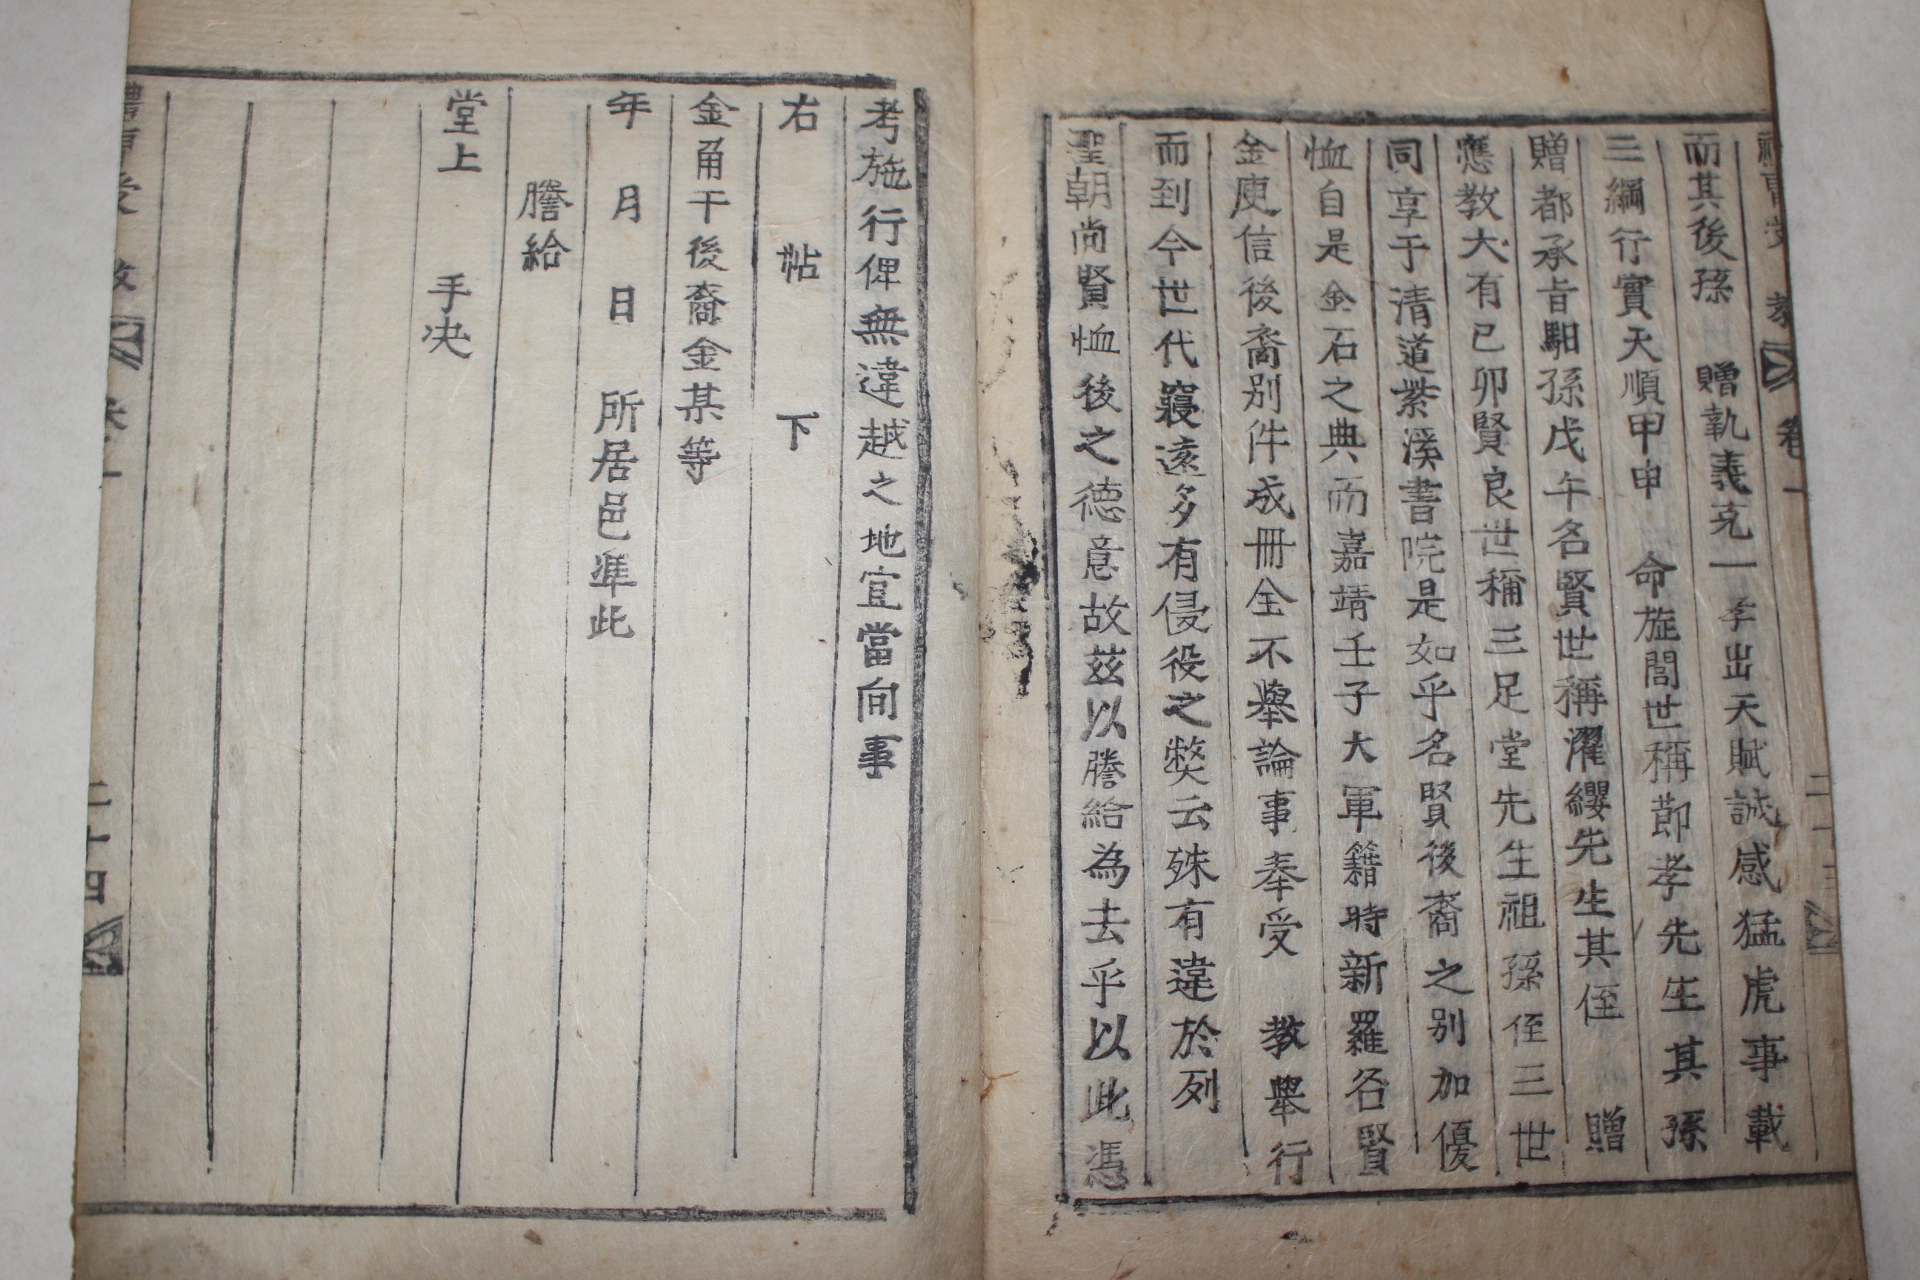 卷一
而其後孫 贈執義克一孝出天賦誠感猛虎事載
三綱行實天順甲申 命旌閭世稱節孝先生其孫
贈都承旨馹孫戊午名賢世稱濯纓先生其侄 贈
應教大有己卯賢良世稱三足堂先生祖孫侄三世
同享于清道紫溪書院是如乎名賢後裔之別加優
恤自是金石之典而嘉靖壬子大軍籍時新羅名賢
金庾信後裔別件成冊全不舉論事奉受 教舉行
而到今世代寢遠多有侵役之獘云殊有違於列
聖朝尚賢恤後之德意故玆以謄給為去乎以此憑
考施行俾無違越之地宜當向事
右 帖 下
金甬干後裔金某等
年 月 日 所居邑準此
謄給
堂上 手决
二十四